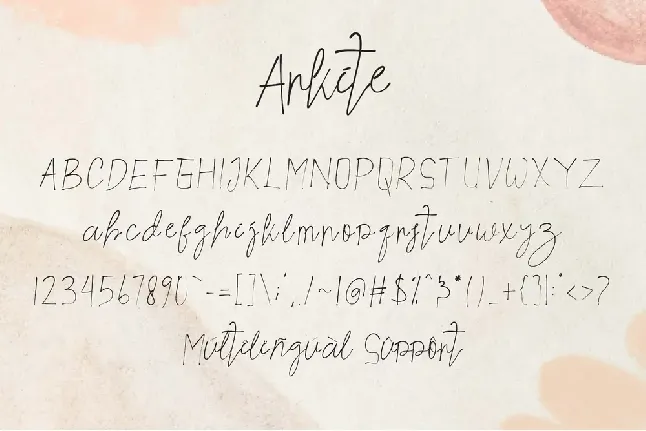 Arkite
ABCDEFGHIJKLMNOPQRSTUVWXYZ
abcdefghijklmnopqrstuvwxyz
1234567890`-=[]\;',./~!@#$%^&*()_+{}|:"<>?
Múltilingüàl Süppôrt